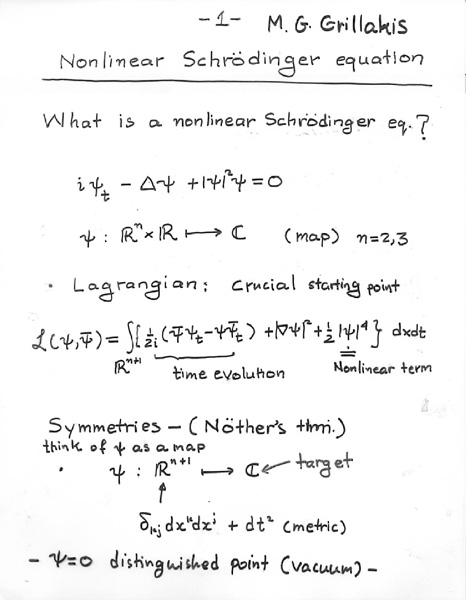 -1- M. G. Grillakis
Nonlinear Schrödinger equation
What is a nonlinear Schrödinger eq.?
iψ_t - Δψ + |ψ|²ψ = 0
ψ : ℝⁿ×ℝ ⟼ ℂ (map) n=2,3
• Lagrangian: crucial starting point
ℒ(ψ,ψ̄) = ∫{½i(ψ̄ψ_t-ψψ̄_t) + |∇ψ|² + ½|ψ|⁴} dxdt
ℝⁿ⁺¹ time evolution Nonlinear term
Symmetries - (Nöther's thm.)
think of ψ as a map
• ψ : ℝⁿ⁺¹ ⟼ ℂ ← target
↑
δ_{kj} dxᵏdxʲ + dt² (metric)
- ψ=0 distinguished point (vacuum) -